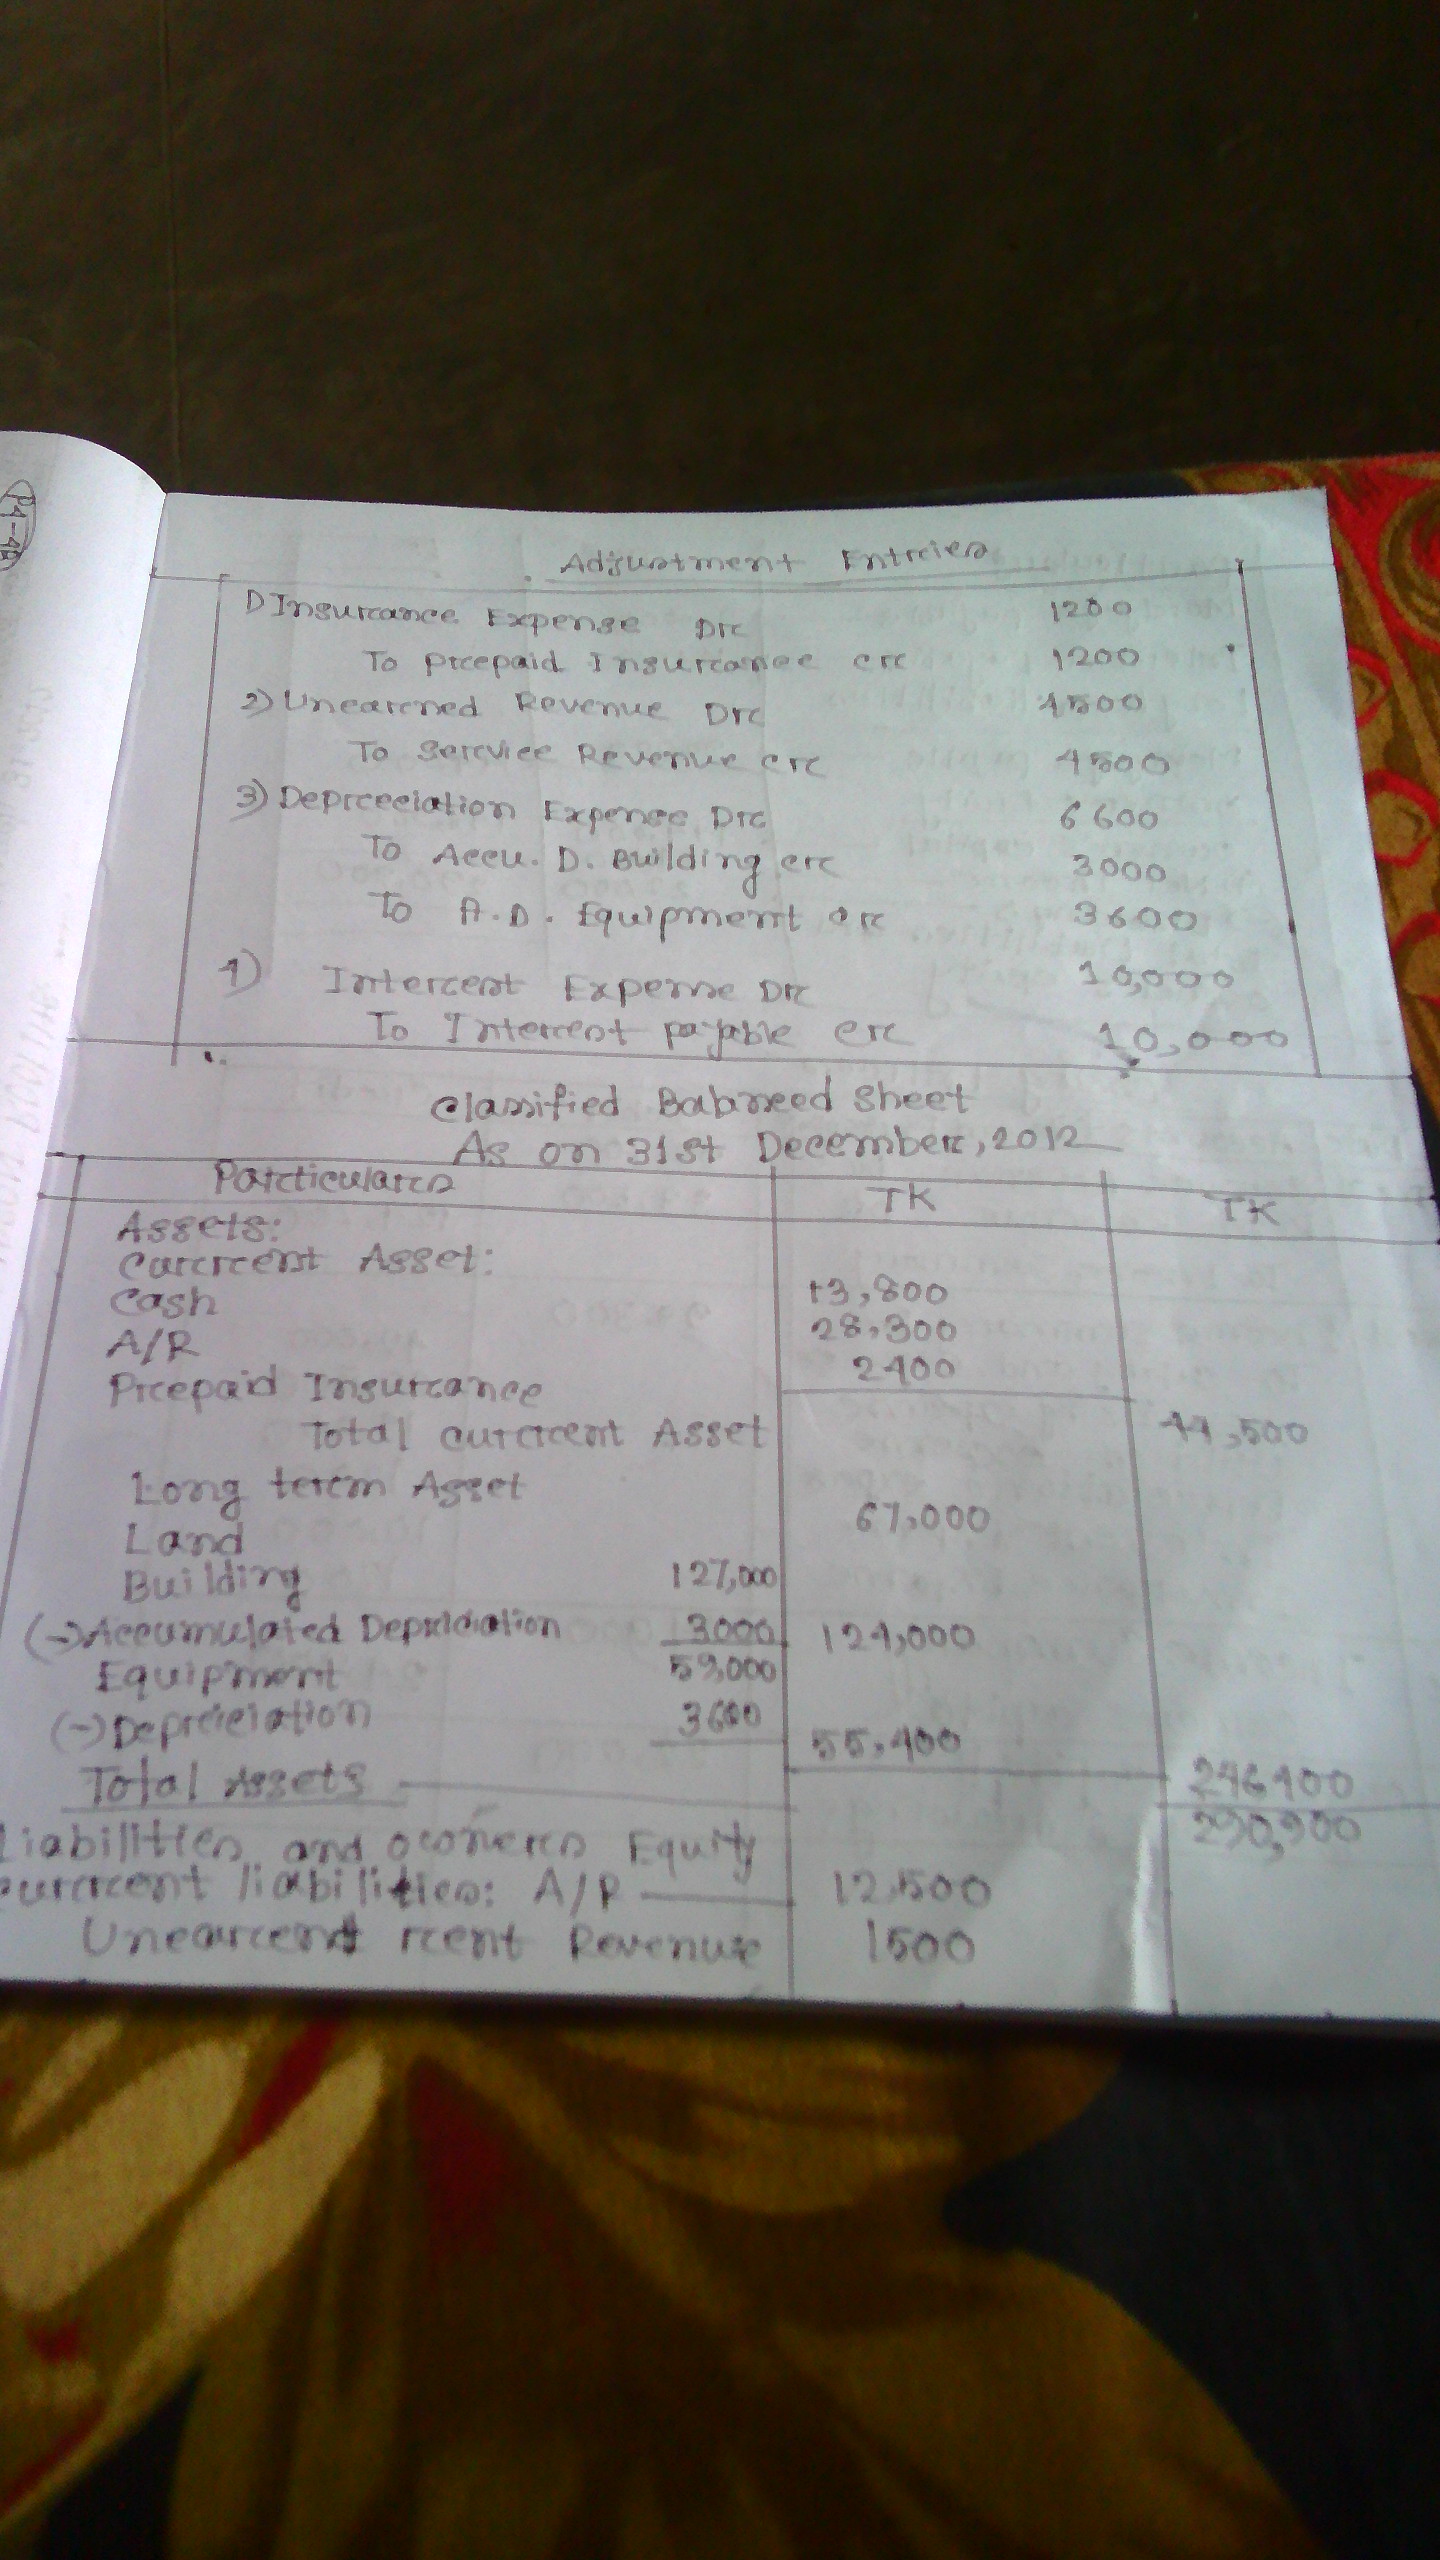 P4-4A
Adjustment Entries
1) Insurance Expense Dr 1200
To prepaid Insurance cr 1200
2) Unearned Revenue Dr 4500
To Service Revenue cr 4500
3) Depreciation Expense Dr 6600
To Accu. D. Building cr 3000
To A.D. Equipment cr 3600
4) Interest Expense Dr 10,000
To Interest payable cr 10,000
Classified Balanced Sheet
As on 31st December, 2012
Particulars TK TK
Assets:
Current Asset:
Cash 13,800
A/R 28,300
Prepaid Insurance 2400
Total current Asset 44,500
Long term Asset
Land 67,000
Building 127,000
(-) Accumulated Depriciation 3000 124,000
Equipment 59,000
(-) Depreciation 3600 55,400
246400
Total Assets 290,900
Liabilities and owners Equity
current liabilities: A/P 12,500
Unearned rent Revenue 1500